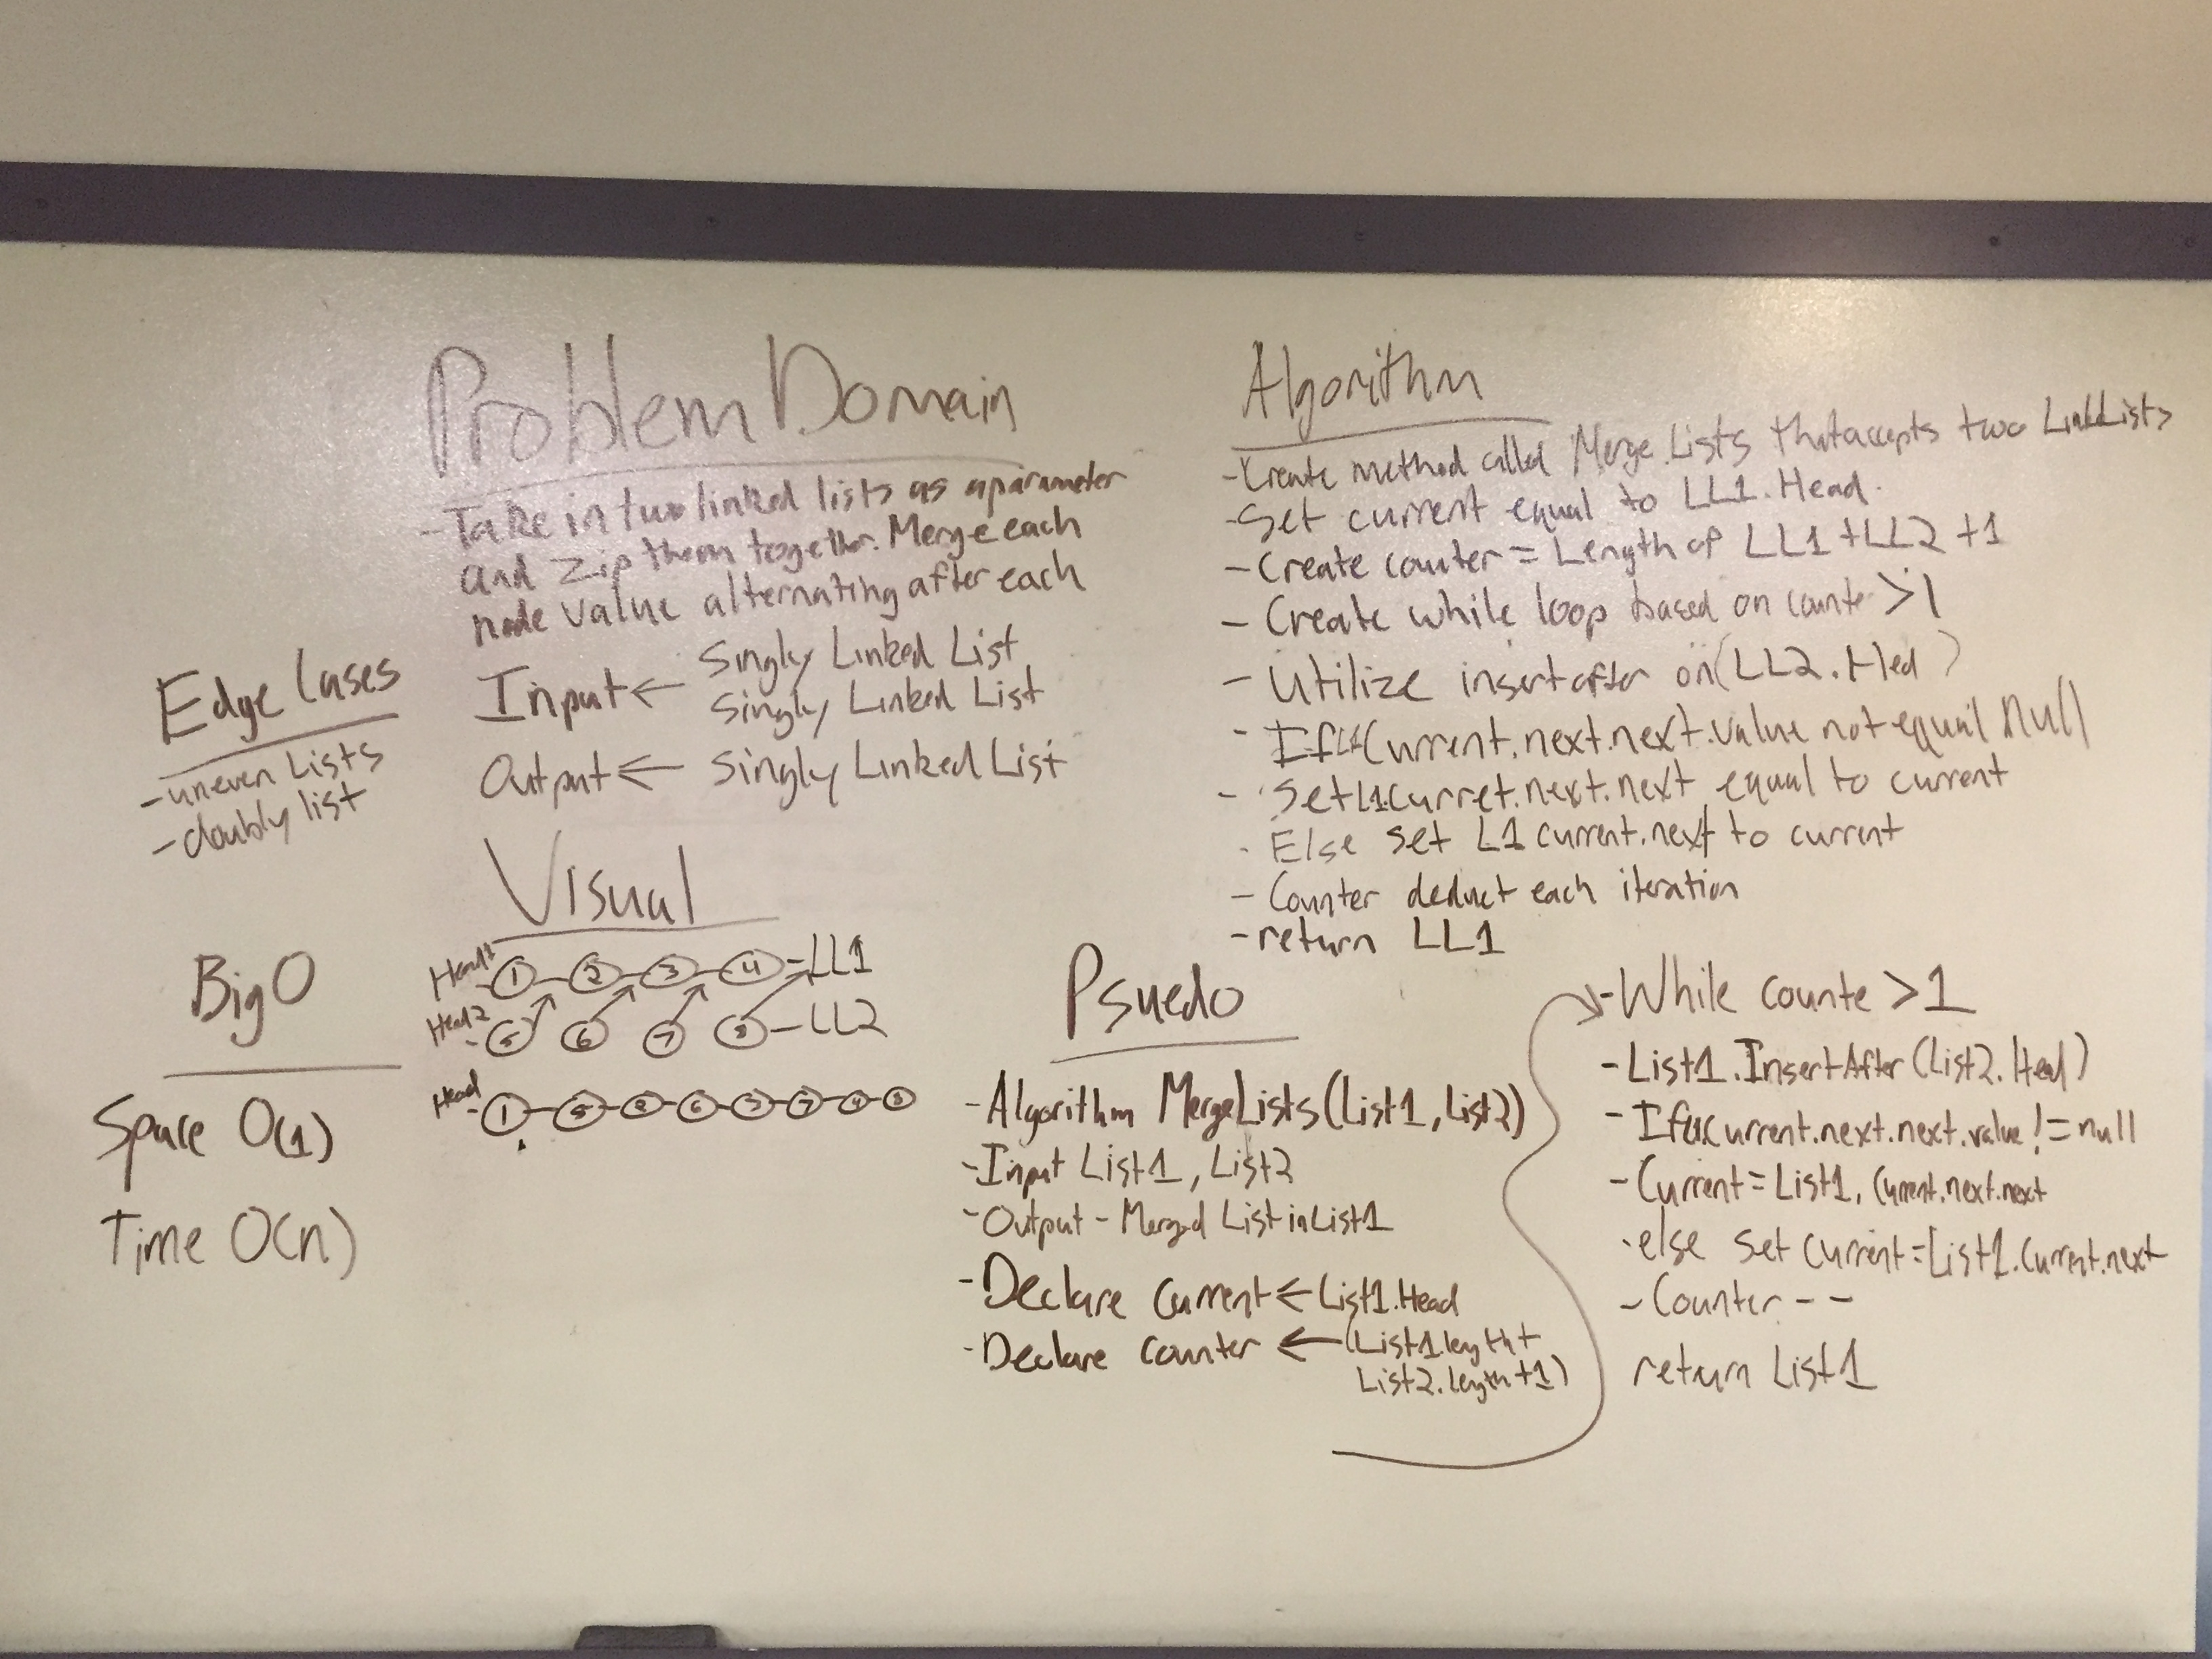 Problem Domain
- Take in two linked lists as a parameter
and zip them together. Merge each
node value alternating after each
Input ← Singly Linked List
Singly Linked List
Output ← Singly Linked List
Edge Cases
- uneven Lists
- doubly list
Big O
Space O(1)
Time O(n)
Visual
Head1 1 2 3 4 - LL1
Head2 5 6 7 8 - LL2
Head 1 5 2 6 3 7 4 8
Algorithm
- Create method called Merge Lists that accepts two LinkLists
- Set current equal to LL1.Head.
- Create counter = Length of LL1 + LL2 + 1
- Create while loop based on counte > 1
- Utilize insertafter on (LL2.Hed)
- If L1 Current.next.next.value not equal Null
- Set L1.Curret.next.next equal to current
- Else set L1 current.next to current
- Counter deduct each iteration
- return LL1
Psuedo
- Algorithm MergeLists(List1, List2)
- Input List1, List2
- Output - Merged List in List1
- Declare Current ← List1.Head
- Declare Counter ← (List1.length +
List2.length + 1)
- While counte > 1
- List1.InsertAfter(List2.Hed)
- If L1 Current.next.next.value != null
- Current = List1, Current.next.next
- else set Current = List1.Current.next
- Counter - -
return List1